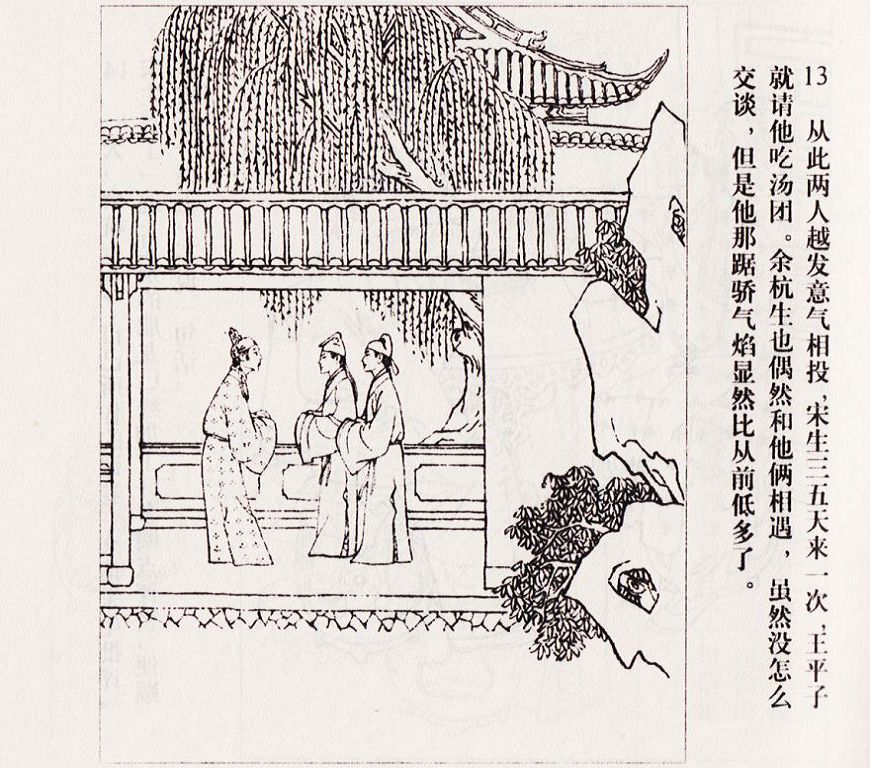 13 从此两人越发意气相投，宋生三五天来一次，王平子
就请他吃汤团。余杭生也偶然和他俩相遇，虽然没怎么
交谈，但是他那踞骄气焰显然比从前低多了。